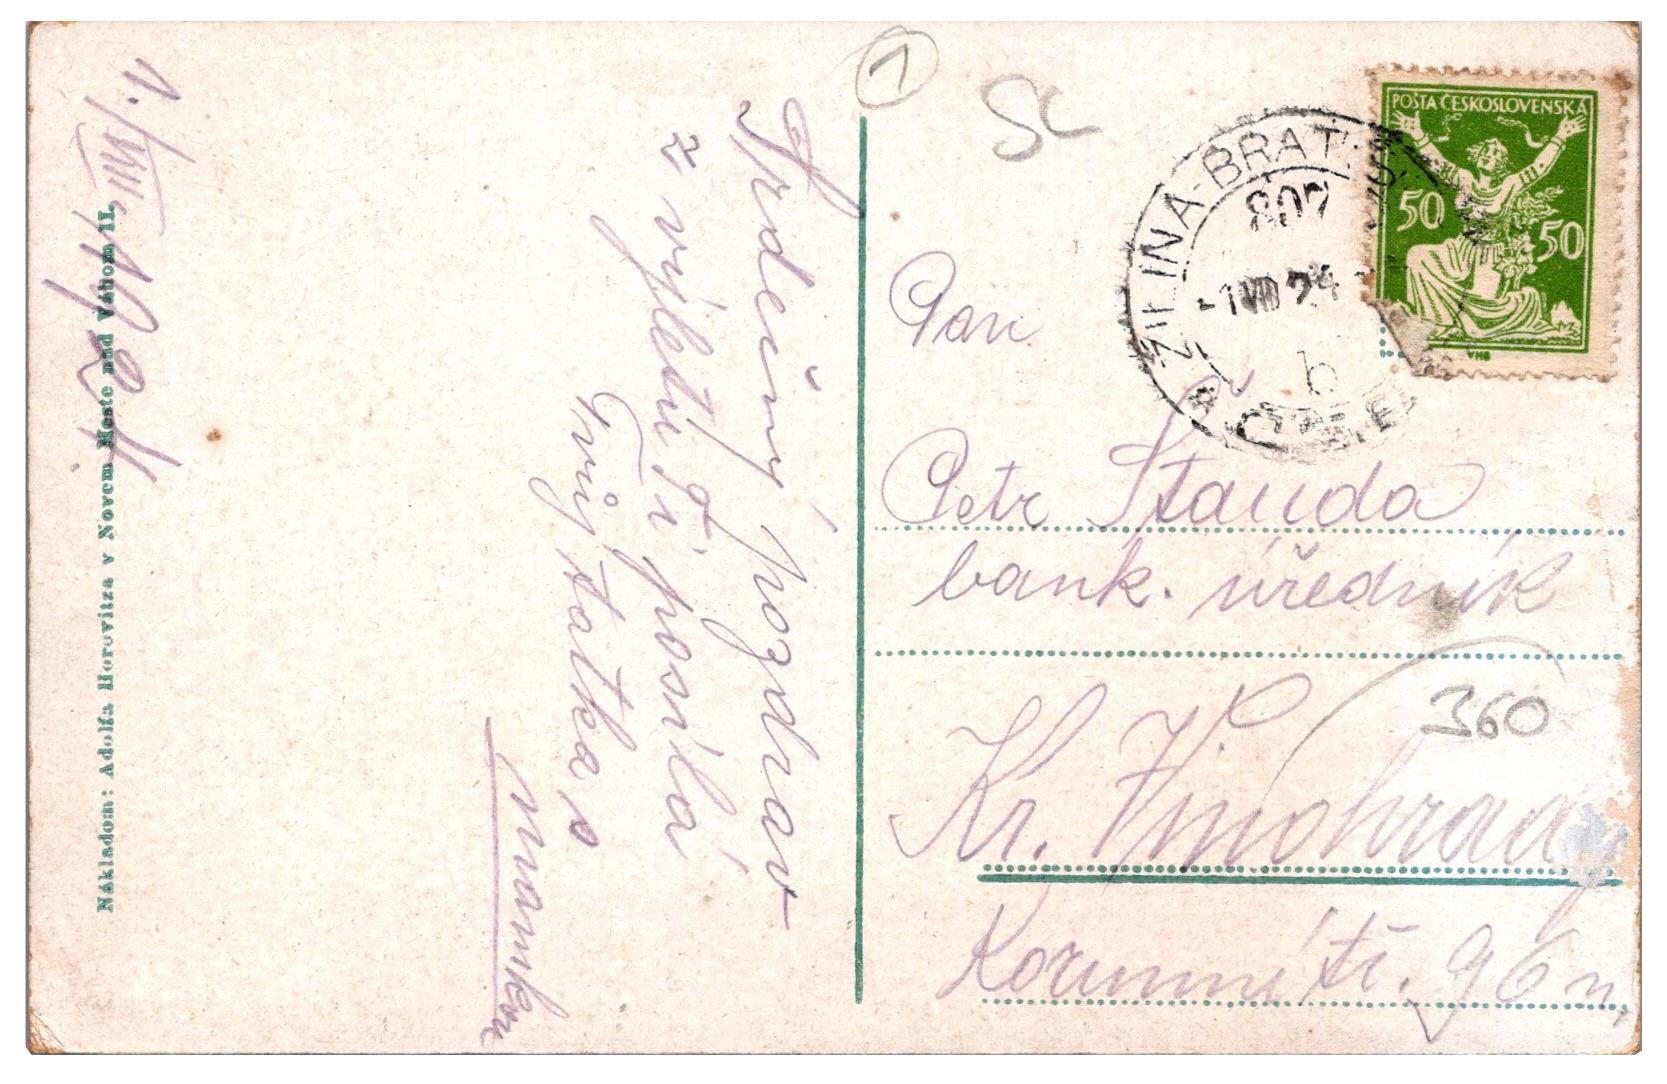 1./VIII. 1924.
Nákladom: Adolfa Horovitza v Novem Meste nad Váhom II.
Srdečný pozdrav
z výletu Ti posílá
Tvůj tatka s
mamkou
1
SL
POŠTA ČESKOSLOVENSKÁ
50 50
ŽILINA-BRATIS
807
-1 VIII 24
b
Pan
Petr Štauda
bank. úředník
360
Kr. Vinohrady
Korunní tř. 96 n